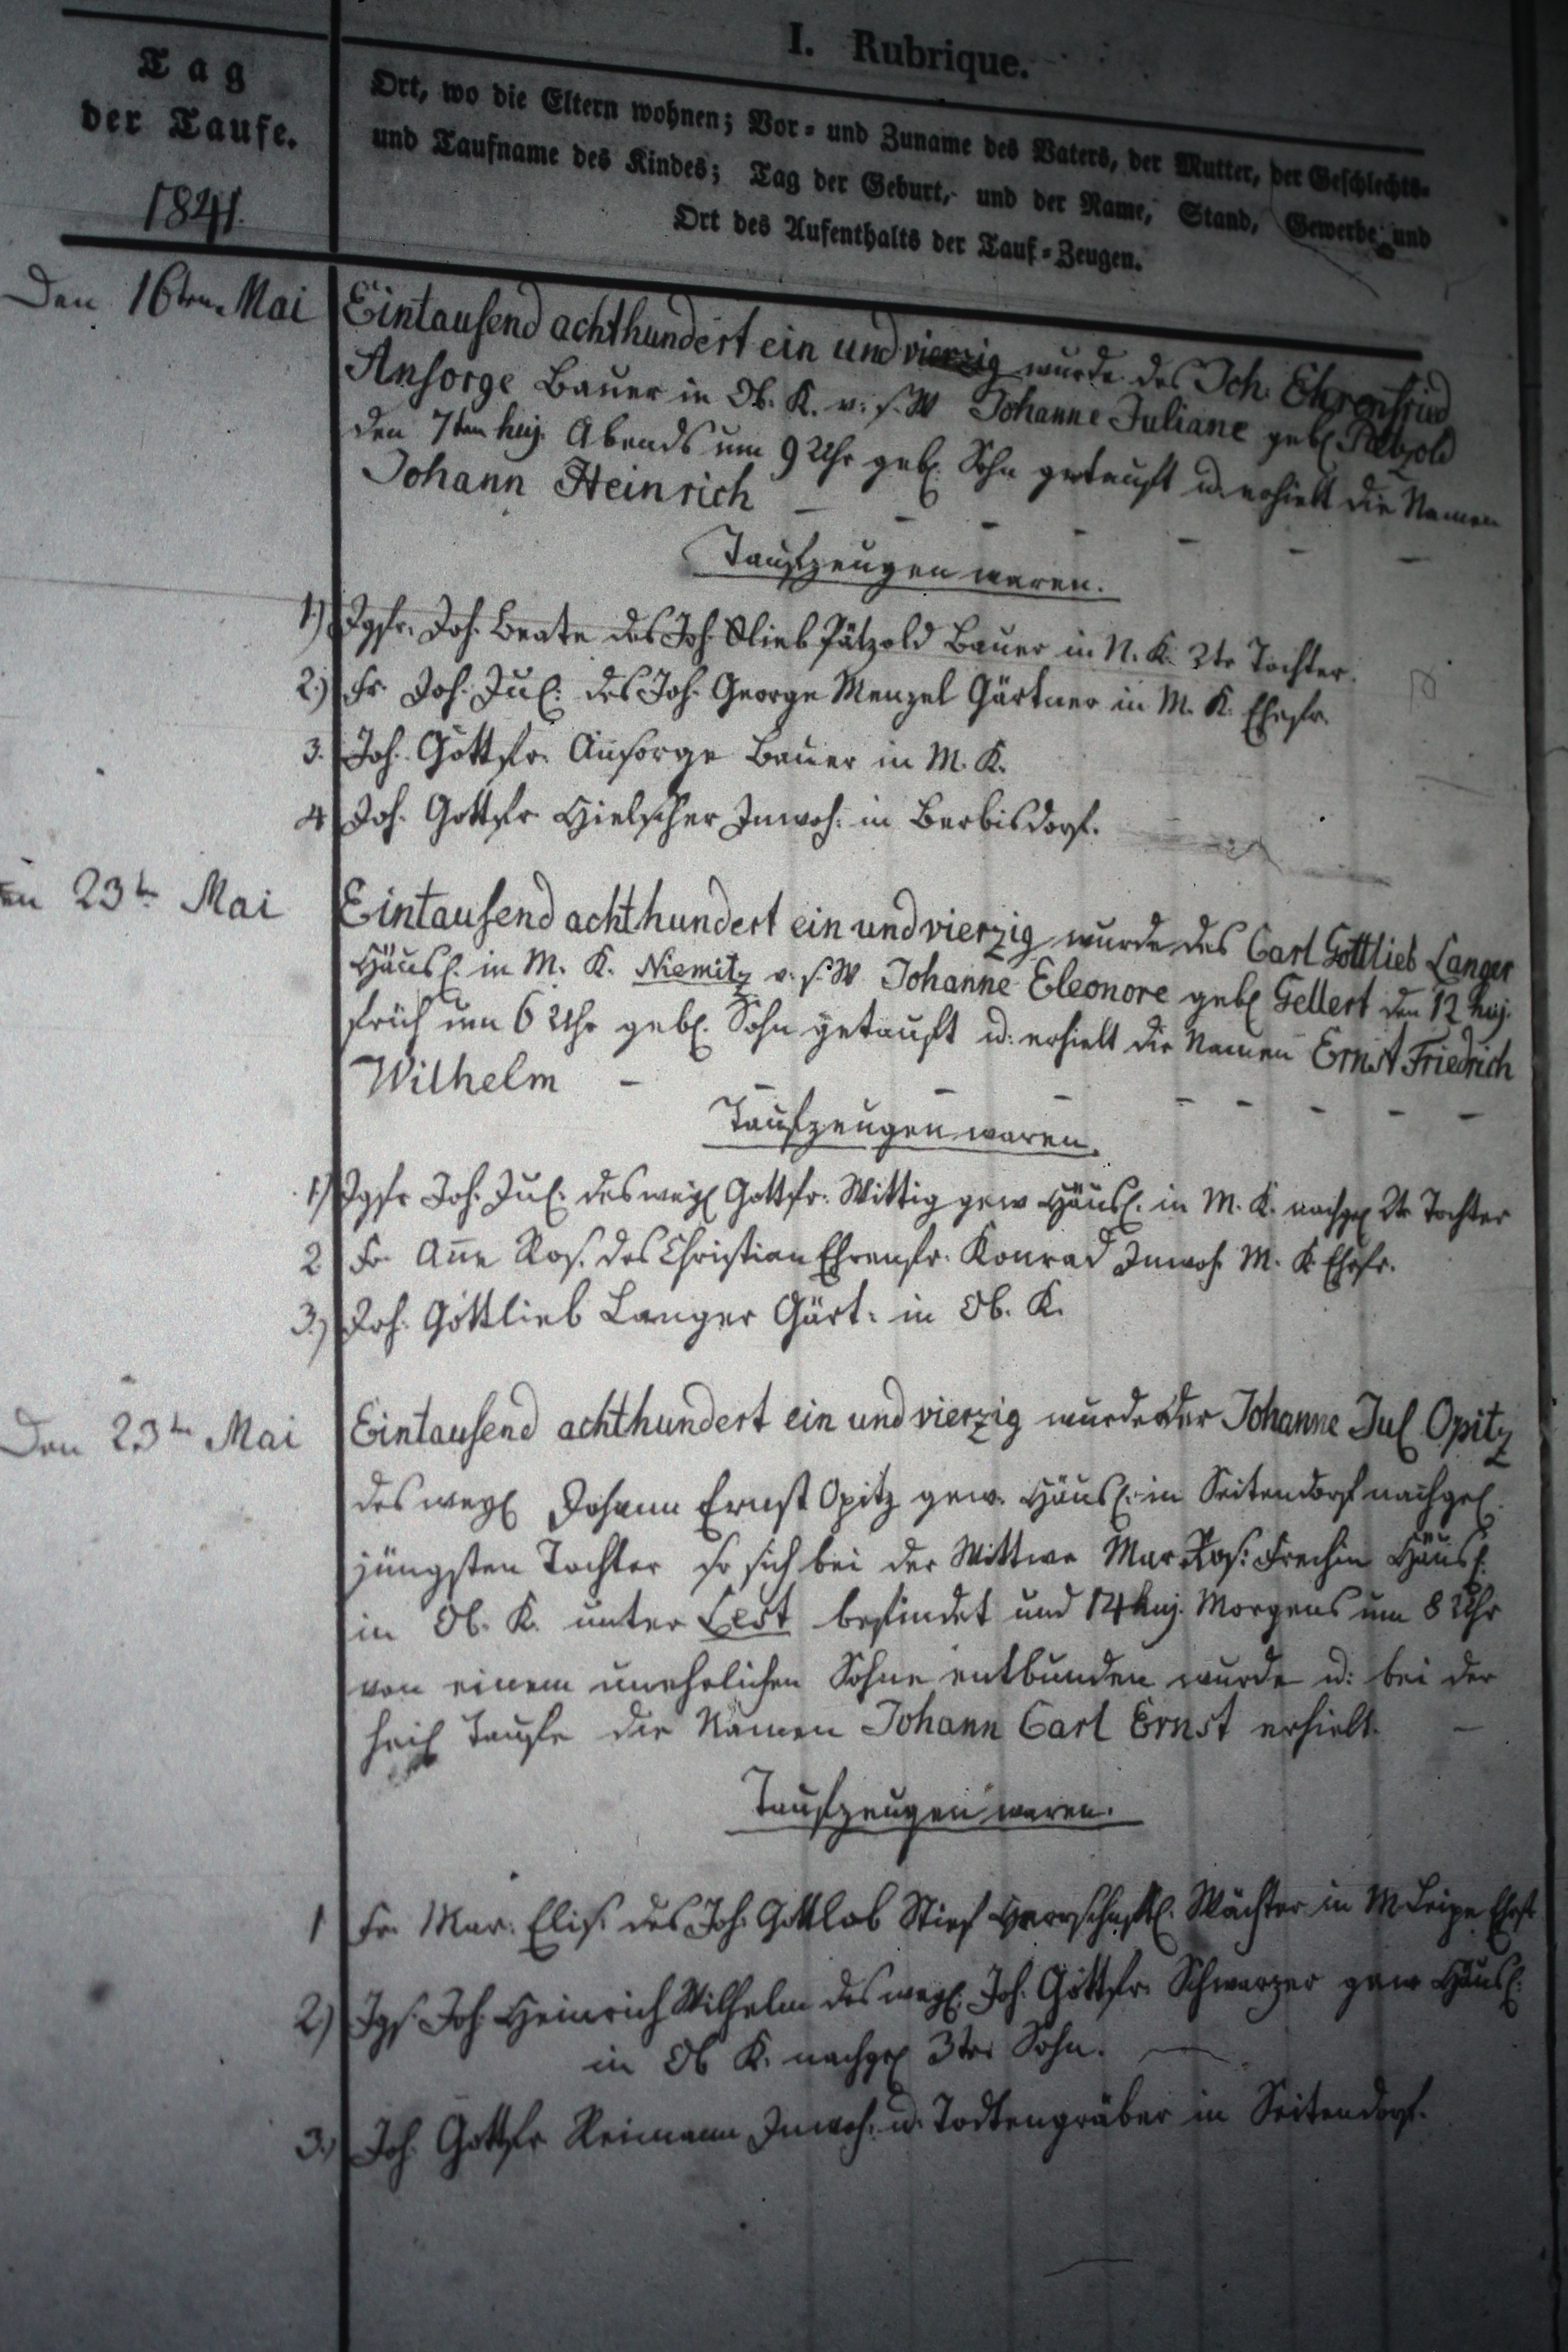 I. Rubrique.
Tag
der Taufe.
1841.
Ort, wo die Eltern wohnen; Vor= und Zuname des Vaters, der Mutter, der Geschlechts=
und Taufname des Kindes; Tag der Geburt, und der Name, Stand, Gewerbe und
Ort des Aufenthalts der Tauf=Zeugen.
Den 16ten Mai
Eintausend achthundert ein und vierzig wurde des Joh. Ehrenfried
Ansorge Bauer in Ob. K. v. s. W Johanne Juliane gebl Pätzold
den 7ten huj. Abends um 9 Uhr gebl. Sohn getauft u. erhielt die Namen
Johann Heinrich
Taufzeugen waren.
1.) Jgfr. Joh. Beate des Joh. Glieb Pätzold Bauer in N. K. 2te Tochter.
2.) Fr. Joh. Jul: des Joh. George Menzel Gärtner in M. K. Ehefr.
3. Joh. Gottfr. Ansorge Bauer in M. K.
4 Joh. Gottfr Hielscher Inwoh: in Berbisdorf.
en 23t Mai
Eintausend achthundert ein und vierzig wurde des Carl Gottlieb Langer
Häusl. in M. K. Niemitz v. s. W Johanne Eleonore gebl Gellert den 12 huj.
früh um 6 Uhr gebl. Sohn getauft u: erhielt die Namen Ernst Friedrich
Wilhelm
Taufzeugen waren.
1.) Jgfr Joh. Jul: des weyl Gottfr. Wittig gew Häusl. in M. K. nachgel 2te Tochter
2 Fr. Añe Ros. des Christian Ehrenfr. Konrad Inwoh M. K Ehefr.
3.) Joh. Gottlieb Langer Gärt: in Ob. K.
Den 23t Mai
Eintausend achthundert ein und vierzig wurde der Johanne Jul Opitz
des weyl Johann Ernst Opitz gew. Häusl. in Seitendorf nachgel.
jüngsten Tochter so sich bei der Wittwe Mar Ros: Häusl:
in Ob. K. unter befindet und 14 huj. Morgens um 8 Uhr
von einem unehelichen Sohne entbunden wurde u: bei der
heil Taufe die Namen Johann Carl Ernst erhielt.
Taufzeugen waren.
1 Fr. Mar. Elis. des Joh. Gottlob Stief Herrschaftl. Wächter in M Leipe Ehefr
2) Jgs. Joh. Heinrich Wilhelm des weyl. Joh. Gottfr. Schwarzer gew Häusl:
in Ob K. nachgel 3ter Sohn.
3.) Joh. Gottfr Reimann Inwoh. u. Todtengräber in Seitendorf.